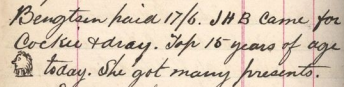 Bengtsin paid 17/6. JHB came for
Cockie & dray. Top 15 years of age
today. She got many presents.